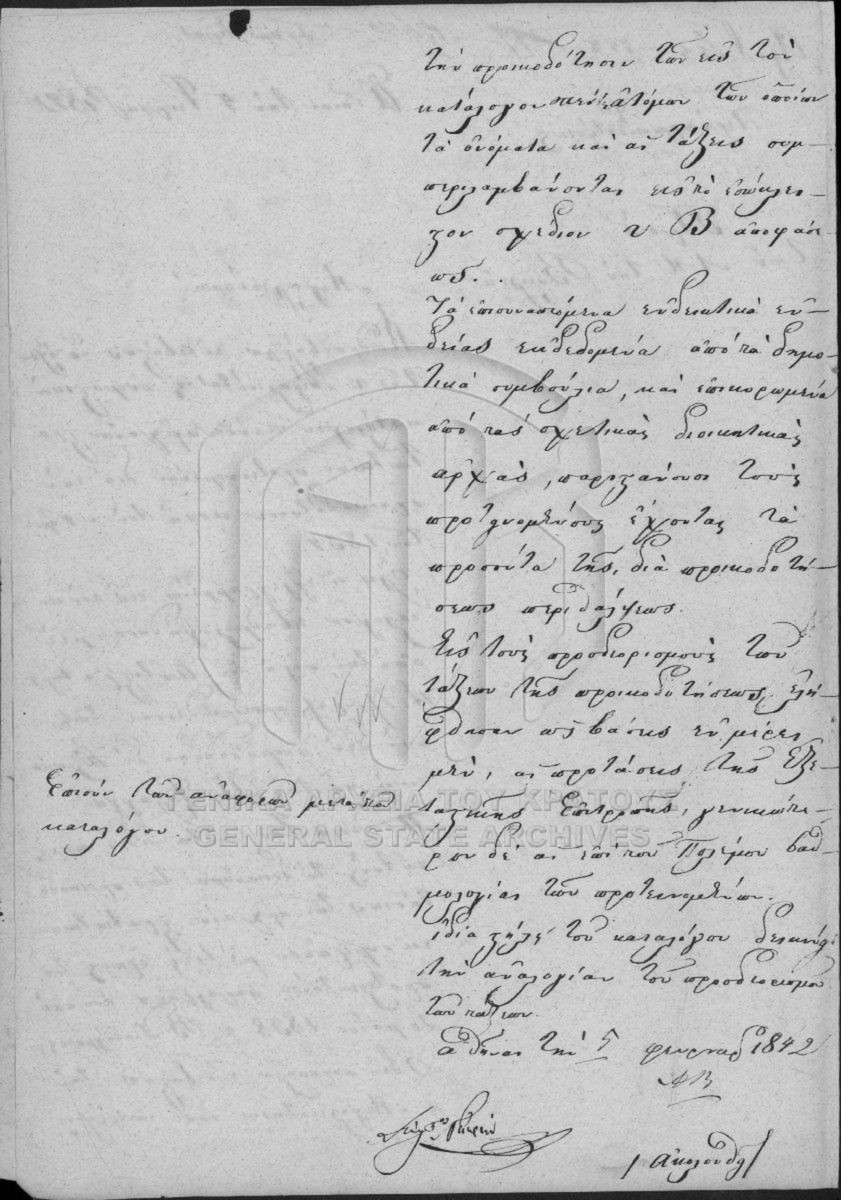 τὴν προικοδότησιν τῶν εἰς τὸν
κατάλογον ἀτόμων τῶν ὁποίων
τὰ ὀνόματα καὶ αἱ τάξεις συμ-
περιλαμβάνονται εἰς τὸ ἐσώκλει-
στον σχέδιον Β ἀποφάσε-
ως.
Τὰ ἐπισυναπτόμενα ἐνδεικτικὰ ἐν-
δείας ἐκδεδομένα ἀπὸ τὰ δημο-
τικὰ συμβούλια, καὶ ἐπικυρωμένα
ἀπὸ τὰς σχετικὰς διοικητικὰς
ἀρχὰς, παριστάνουσι τοὺς
προτεινομένους ἔχοντας τὰ
προσόντα τῆς διὰ προικοδοτή-
σεως περιθάλψεως.
Εἰς τοὺς προσδιορισμοὺς τῶν
τάξεων τῆς προικοδοτήσεως ἐλή-
φθησαν ὡς βάσις ἐν μέρει
μὲν, αἱ προτάσεις τῆς Ἐξε-
ταστικῆς Ἐπιτροπῆς, γενικώτε-
ρον δὲ αἱ ἐπὶ τοῦ Πολέμου βαθ-
μολογίαι τῶν προτεινομένων.
ἰδία στήλη τοῦ καταλόγου δεικνύει
τὴν ἀναλογίαν τοῦ προσδιορισμοῦ
τῶν τάξεων.
Ἀθῆναι τὴν 5 φευρουαρ 1842
ἀκολουθεῖ
τῶν ἀναφορῶν μετὰ τοῦ
καταλόγου.
ΓΕΝΙΚΑ ΑΡΧΕΙΑ ΤΟΥ ΚΡΑΤΟΥΣ
GENERAL STATE ARCHIVES